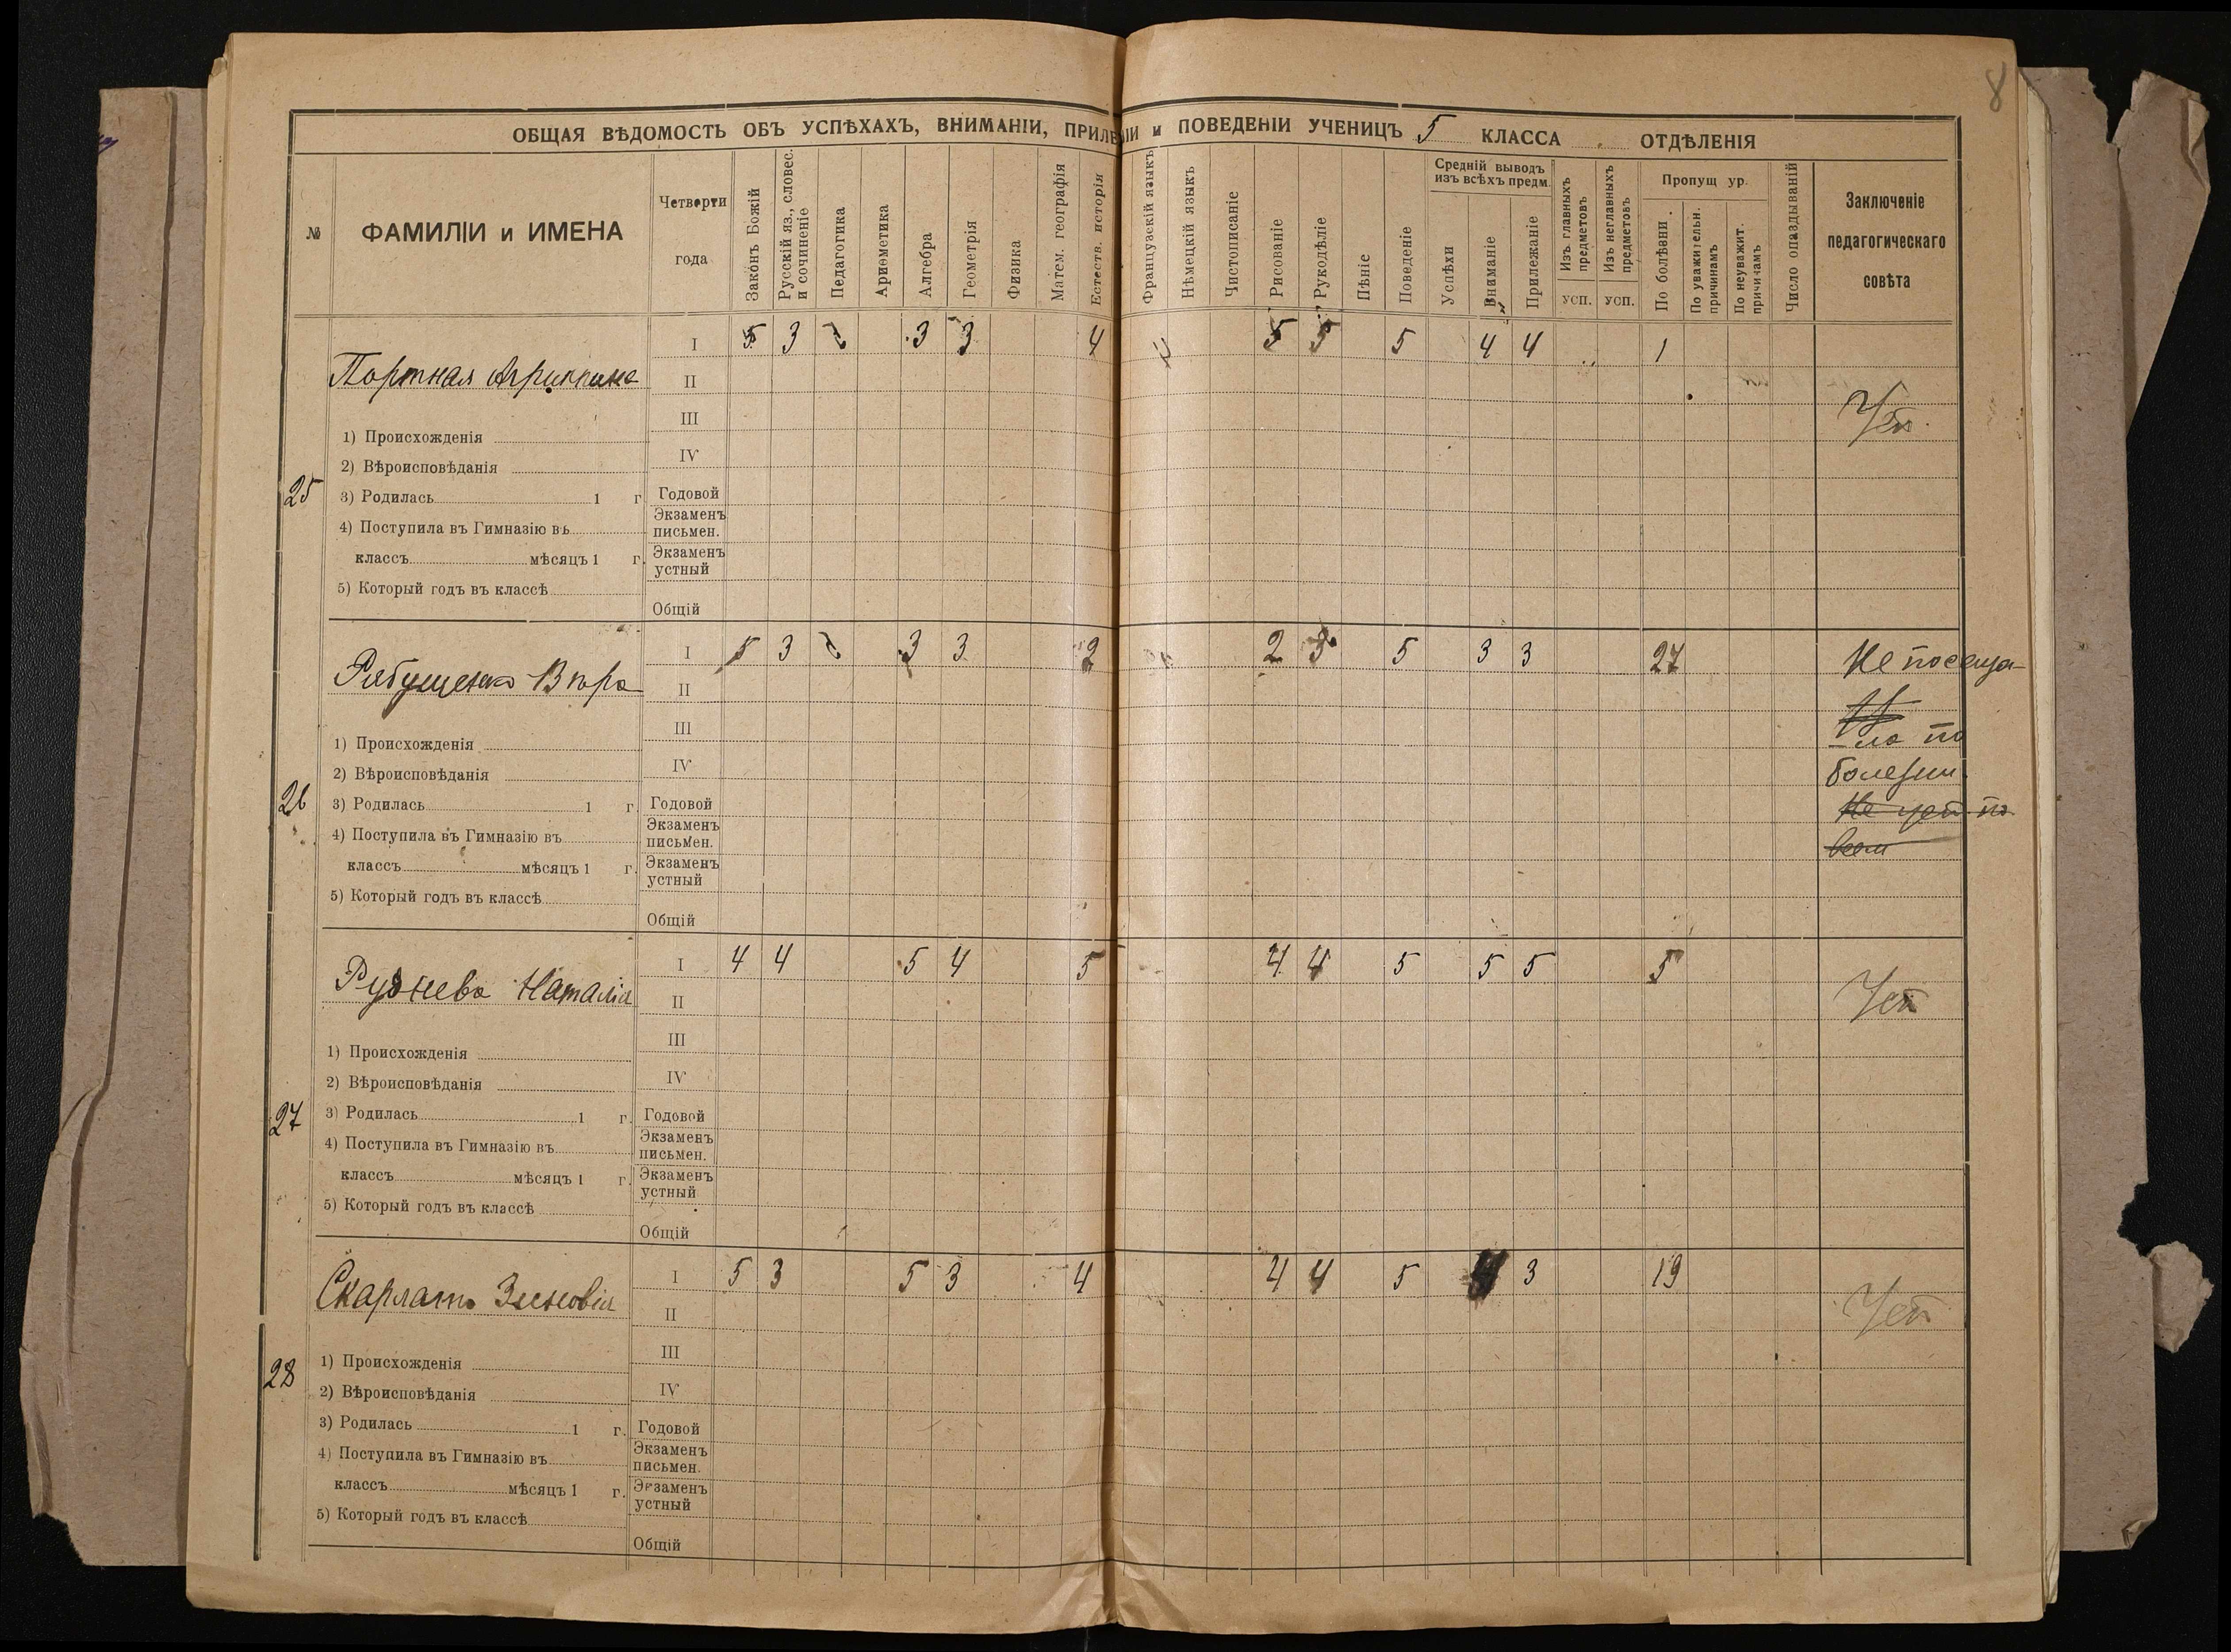 8
ОБЩАЯ ВѢДОМОСТЬ ОБЪ УСПѢХАХЪ, ВНИМАНІИ, ПРИЛЕ ІИ и ПОВЕДЕНІИ УЧЕНИЦЪ 5 КЛАССА ОТДѢЛЕНІЯ
№
ФАМИЛІИ и ИМЕНА
Четверти
года
Законъ Божій
Русскій яз., словес.
и сочиненіе
Педагогика
Ариѳметика
Алгебра
Геометрія
Физика
Матем. географія
Естеств. исторія
Французскій языкъ
Нѣмецкій языкъ
Чистописаніе
Рисованіе
Рукодѣліе
Пѣніе
Поведеніе
Средній выводъ
изъ всѣхъ предм.
Успѣхи
Вниманіе
Прилежаніе
Изъ главныхъ
предметовъ
УСП.
Изъ неглавныхъ
предметовъ
УСП.
Пропущ ур.
По болѣзни
По уважительн.
причинамъ
По неуважит.
причинамъ
Число опаздываній
Заключеніе
педагогическаго
совѣта
25
Портная Агриппина
1) Происхожденія
2) Вѣроисповѣданія
3) Родилась 1 г
4) Поступила въ Гимназію въ
классъ мѣсяцъ 1 г.
5) Который годъ въ классѣ
I 5 3 3 3 4 5 5 5 4 4 1
II
III
IV
Годовой
Экзаменъ
письмен.
Экзаменъ
устный
Общій
Усп.
26
Рябущенко Вѣра
1) Происхожденія
2) Вѣроисповѣданія
3) Родилась 1 г.
4) Поступила въ Гимназію въ
классъ мѣсяцъ 1 г.
5) Который годъ въ классѣ
I 5 3 3 3 2 2 3 5 3 3 27
II
III
IV
Годовой
Экзаменъ
письмен.
Экзаменъ
устный
Общій
Не посеща-
-ла по
болезни
Не усп по
всем
27
Руднева Наталія
1) Происхожденія
2) Вѣроисповѣданія
3) Родилась 1 г.
4) Поступила въ Гимназію въ
классъ мѣсяцъ 1 г.
5) Который годъ въ классѣ
I 4 4 5 4 5 4 4 5 5 5 5
II
III
IV
Годовой
Экзаменъ
письмен.
Экзаменъ
устный
Общій
Усп
28
Скарлато Зиновія
1) Происхожденія
2) Вѣроисповѣданія
3) Родилась 1 г.
4) Поступила въ Гимназію въ
классъ мѣсяцъ 1 г.
5) Который годъ въ классѣ
I 5 3 5 3 4 4 4 5 4 3 19
II
III
IV
Годовой
Экзаменъ
письмен.
Экзаменъ
устный
Общій
Усп